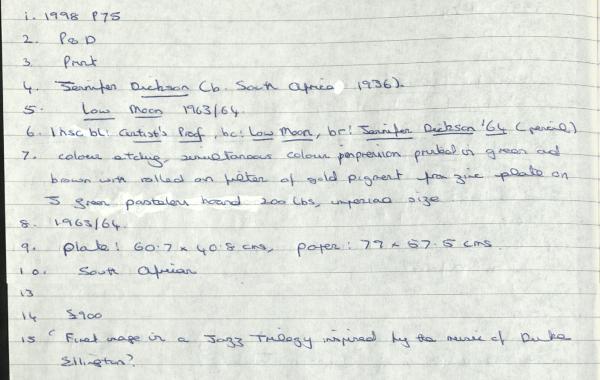 1. 1998 P75
2. P & D
3. Print
4. Jennifer Dickson (b. South Africa 1936).
5. Low Moon 1963/64.
6. Insc bl: Artist's Proof, bc: Low Moon, br: Jennifer Dickson '64 (pencil)
7. colour etching, simultaneous colour impression printed in green and
brown with rolled on filter of gold pigment from zinc plate on
J green pastelou board 200 lbs, imperial size
8. 1963/64.
9. plate: 60.7 x 40.8 cms, paper: 77 x 57.5 cms.
10. South African
13
14 £900
15 'First image in a Jazz Trilogy inspired by the music of Duke
Ellington'.